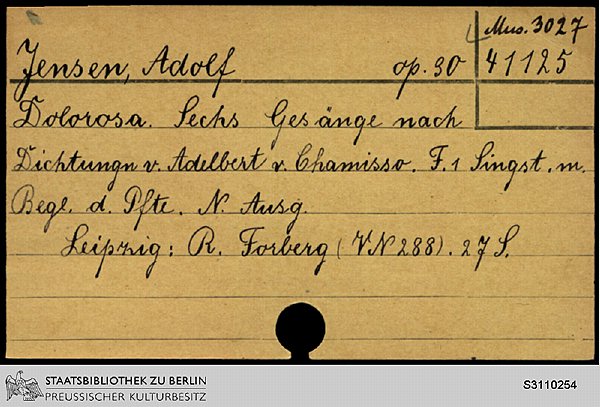 Mus. 3027
Jensen, Adolf op. 30 41125
Dolorosa. Sechs Gesänge nach
Dichtungn v. Adelbert v. Chamisso. F. 1 Singst. m.
Begl. d. Pfte. N. Ausg.
Leipzig: R. Forberg (VN 288). 27 S.
STAATSBIBLIOTHEK ZU BERLIN
PREUSSISCHER KULTURBESITZ
S3110254